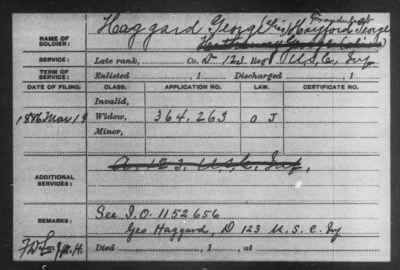 NAME OF SOLDIER: Haggard, George
Hayford George
SERVICE: Late rank, Co. D 123 Reg't U.S.C. Inf
TERM OF SERVICE: Enlisted , 1 Discharged , 1
DATE OF FILING. CLASS. APPLICATION NO. LAW. CERTIFICATE NO.
Invalid,
1886 Mar 19 Widow, 364.263 O J
Minor,
ADDITIONAL SERVICES: A. 123. U.S.C. Inf.
REMARKS: See I.O. 1152656
Geo Haggard, D 123 U.S.C. Iny
Died , 1 , at